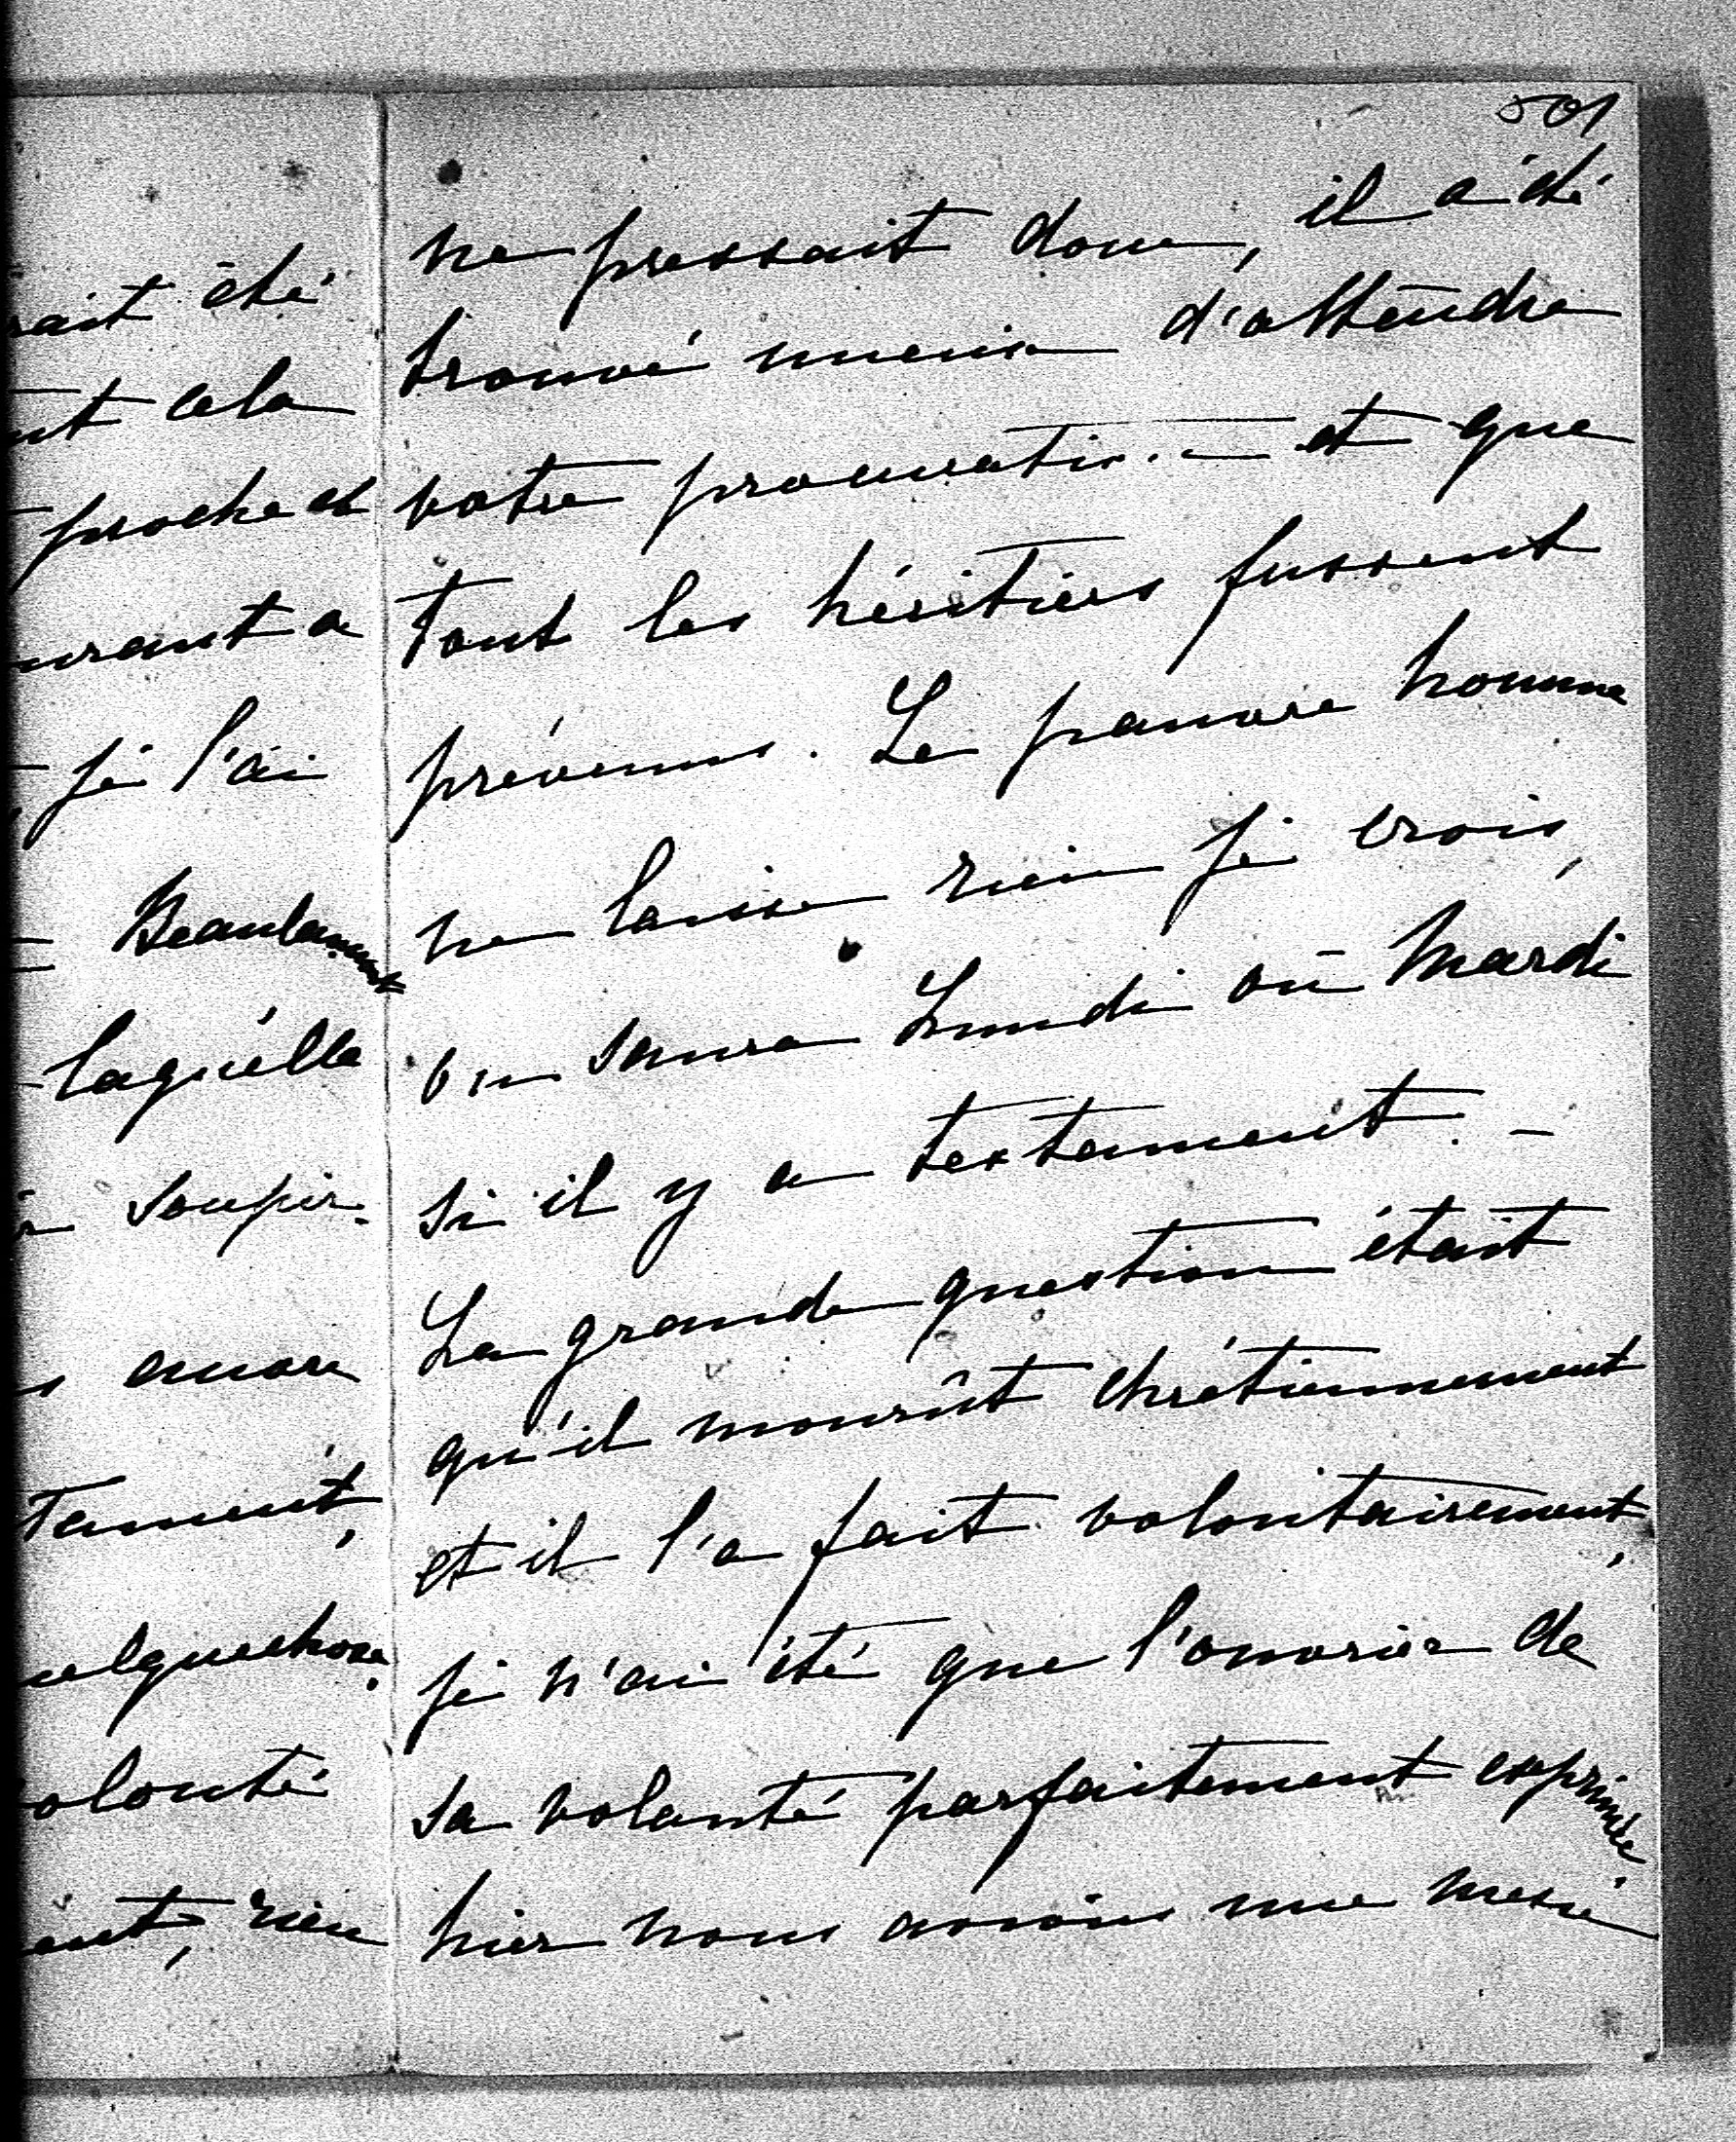 501
ait été
nt cela
proche et
urant a
je l'ai
Beaulaumont
laquelle
soupir.
encore
tament,
uelquechose.
olonté
ent, rien
ne pressait donc, il a été
trouvé mieux d'attendre
votre procuration. — et que
tout les héritiers fussent
prévenus. Le pauvre homme
ne laisse rien je crois,
on saura Lundi ou Mardi
si il y a testament. —
La grande question était
qu'il mourût chrétiennement
et il l'a fait volontairement,
je n'ai été que l'ouvrier de
sa volonté parfaitement exprimée
hier nous avions une